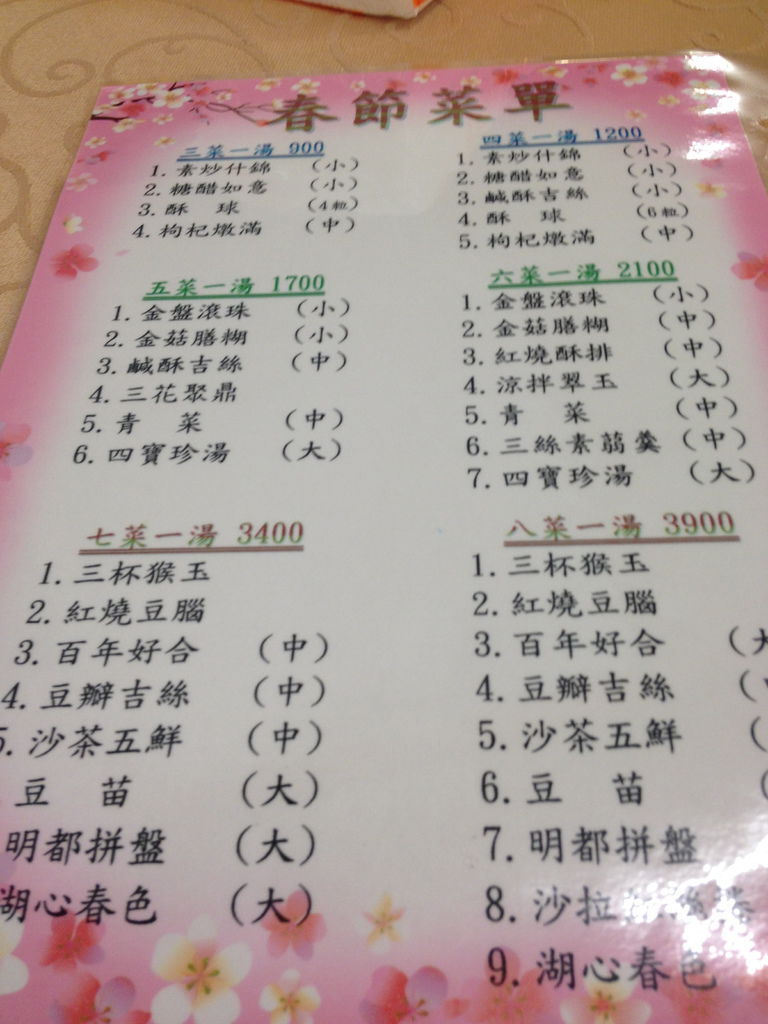 春節菜單
三菜一湯 900
1. 素炒什錦 （小）
2. 糖醋如意 （小）
3. 酥 球 （4粒）
4. 枸杞燉滿 （中）
四菜一湯 1200
1. 素炒什錦 （小）
2. 糖醋如意 （小）
3. 鹹酥吉絲 （小）
4. 酥 球 （6粒）
5. 枸杞燉滿 （中）
五菜一湯 1700
1. 金盤滾珠 （小）
2. 金菇膳糊 （小）
3. 鹹酥吉絲 （中）
4. 三花聚鼎
5. 青 菜 （中）
6. 四寶珍湯 （大）
六菜一湯 2100
1. 金盤滾珠 （小）
2. 金菇膳糊 （中）
3. 紅燒酥排 （中）
4. 涼拌翠玉 （大）
5. 青 菜 （中）
6. 三絲素翦羹 （中）
7. 四寶珍湯 （大）
七菜一湯 3400
1. 三杯猴玉
2. 紅燒豆腦
3. 百年好合 （中）
4. 豆瓣吉絲 （中）
5. 沙茶五鮮 （中）
豆 苗 （大）
明都拼盤 （大）
湖心春色 （大）
八菜一湯 3900
1. 三杯猴玉
2. 紅燒豆腦
3. 百年好合 （大
4. 豆瓣吉絲 （
5. 沙茶五鮮 （
6. 豆 苗 （
7. 明都拼盤
8. 沙拉
9. 湖心春色